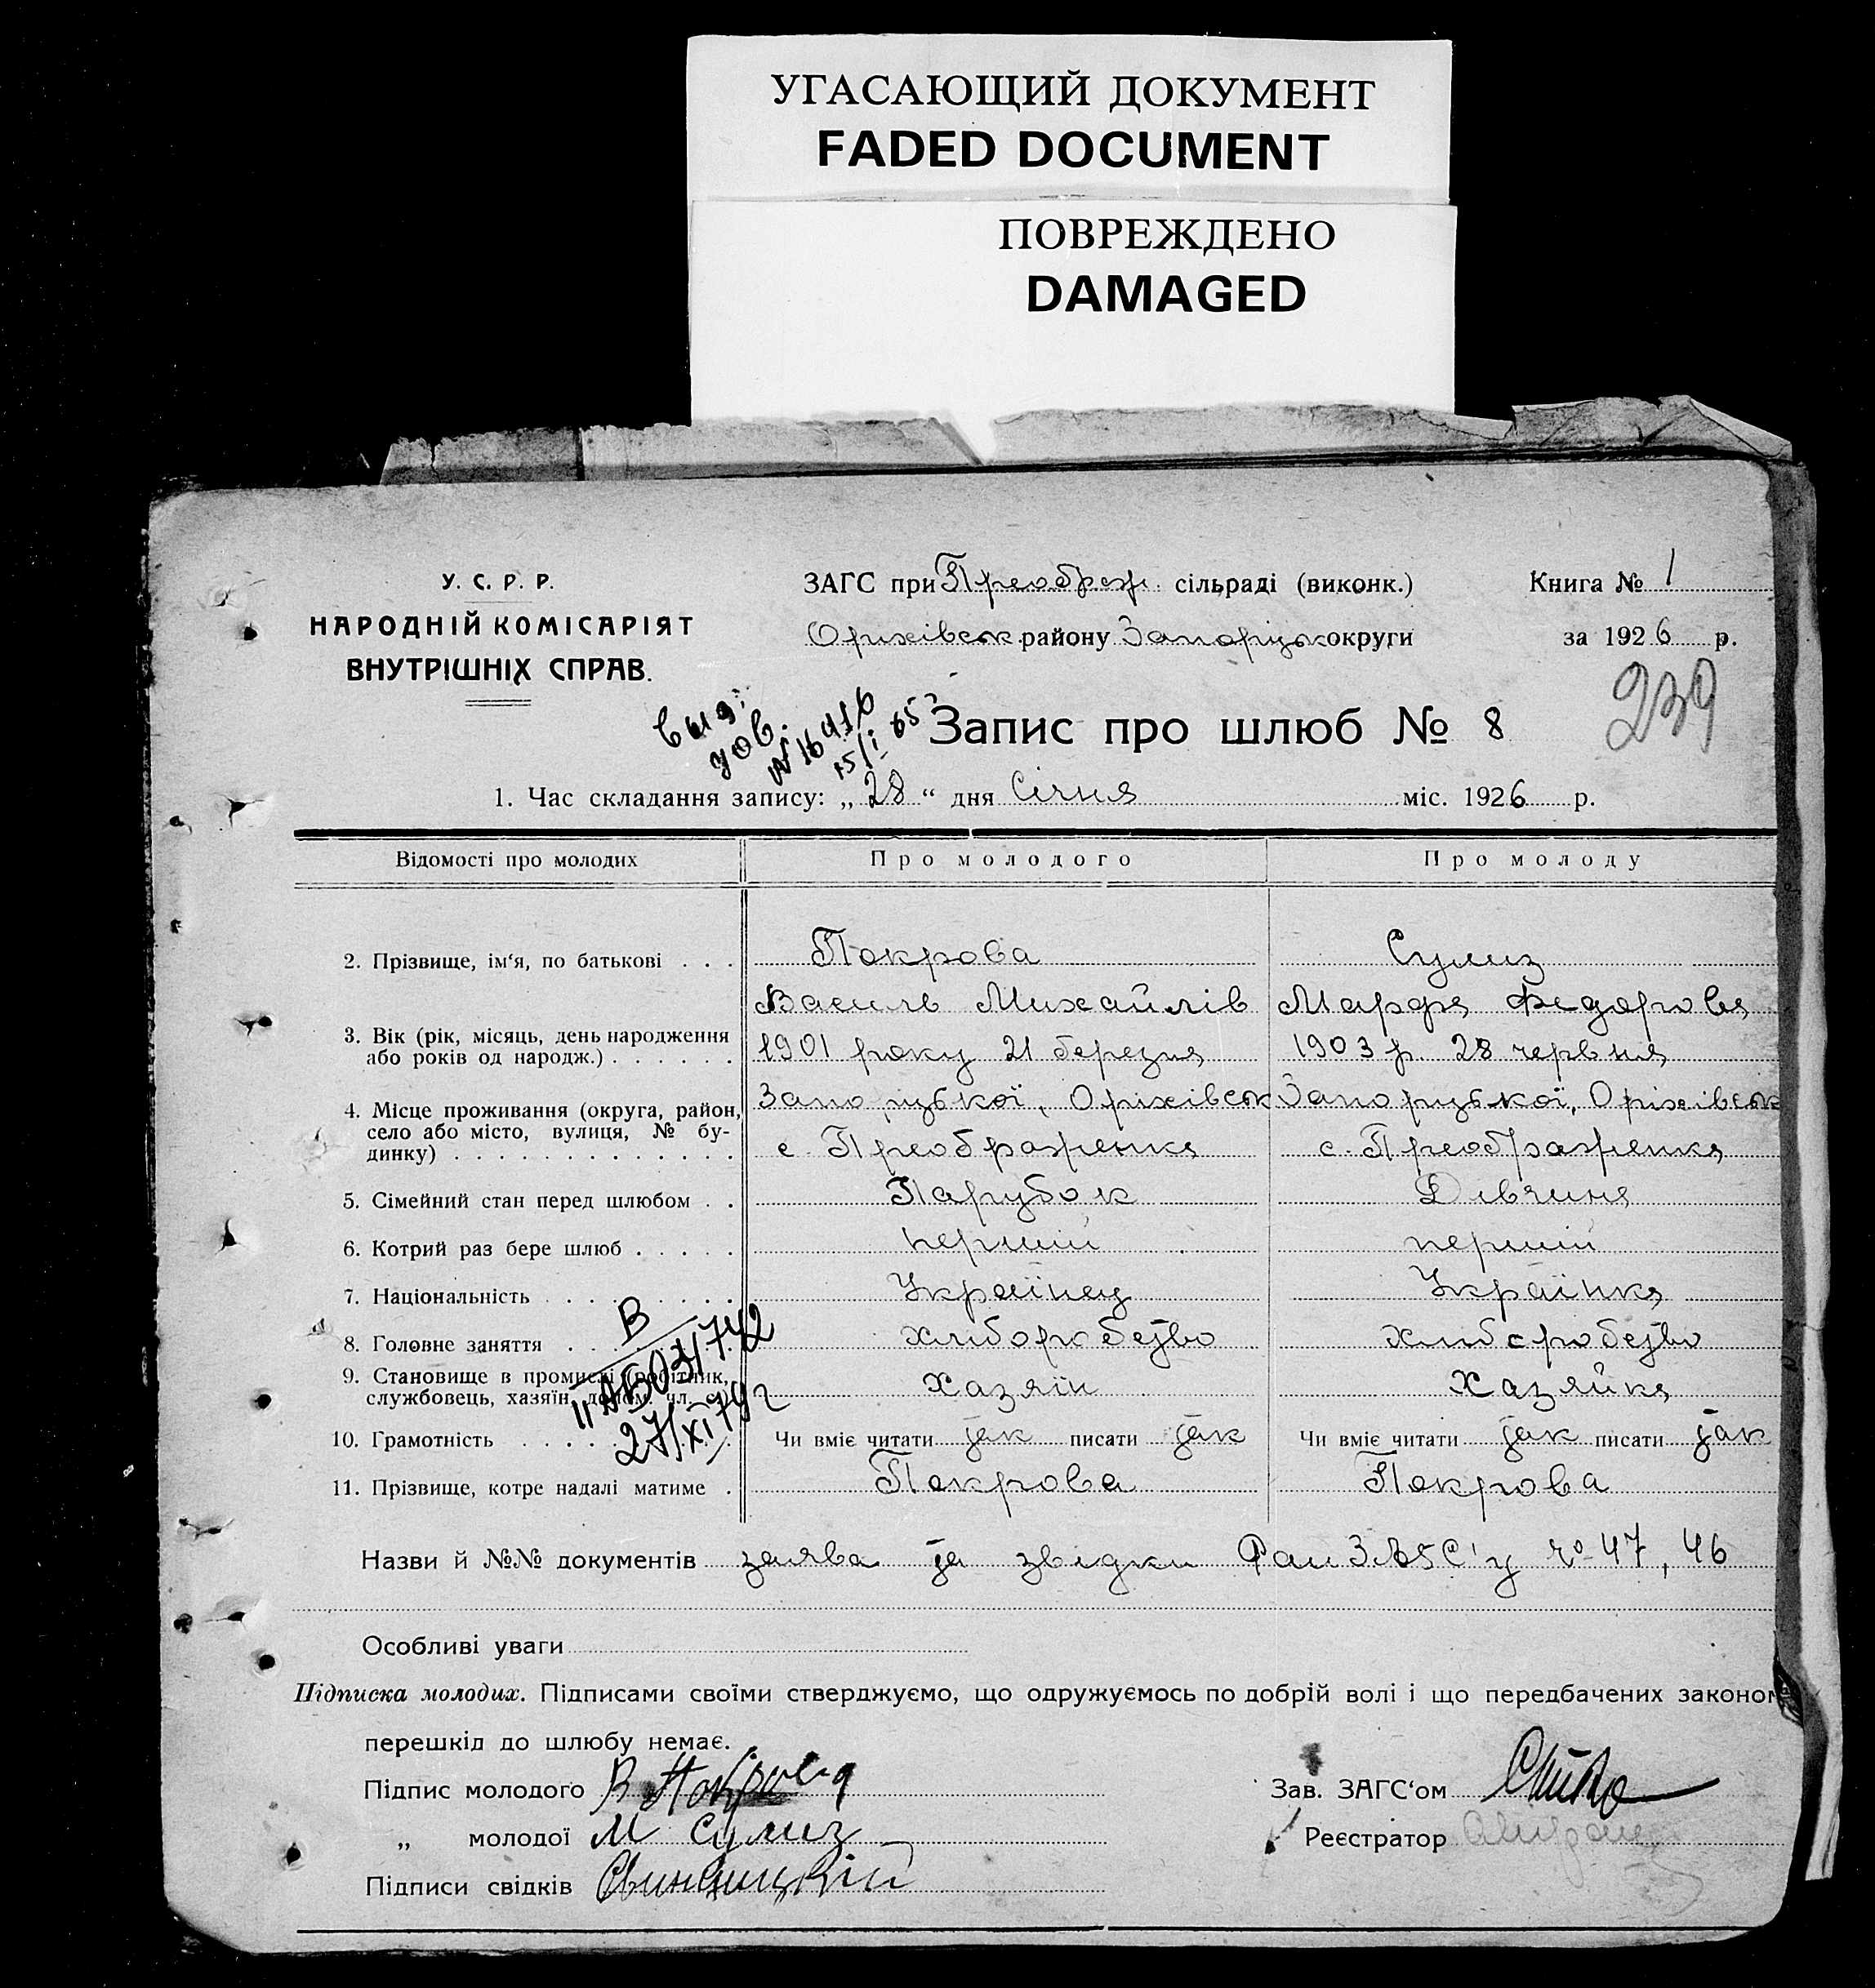 УГАСАЮЩИЙ ДОКУМЕНТ
FADED DOCUMENT
ПОВРЕЖДЕНО
DAMAGED
У. С. Р. Р.
НАРОДНІЙ КОМІСАРІЯТ
ВНУТРІШНІХ СПРАВ.
ЗАГС при Преображ. сільраді (виконк.)
Оріхівськ району Запоріцьк округи
Книга № 1
за 1926 р.
239
Запис про шлюб № 8
1. Час складання запису: „28“ дня Січня міс. 1926 р.
Відомості про молодих Про молодого Про молоду
2. Прізвище, ім'я, по батькові . . . Покрова Сулиз
Василь Михайлів Марфя Федоровя
3. Вік (рік, місяць, день народження
або років од народж.) . . . . . . 1901 року 21 березня 1903 р. 28 червня
4. Місце проживання (округа, район, Запоріцької, Оріхівськ Запоріцької, Оріхівськ
село або місто, вулиця, № бу-
динку) . . . . . . . . . . . . . с. Преображенкя с. Преображенкя
5. Сімейний стан перед шлюбом . . Парубок Дівчиня
6. Котрий раз бере шлюб . . . . . перший перший
7. Національність . . . . . . . . Українец Українкя
8. Головне заняття . . . хліборобство хліборобство
9. Становище в промислі (робітник,
службовець, хазяїн, допом. чл. с.) Хазяїн Хазяйкя
10. Грамотність . . . . . Чи вміє читати так писати так Чи вміє читати так писати так
11. Прізвище, котре надалі матиме . Покрова Покрова
В
II АБ 031742
27/XI 74 г
Назви й №№ документів заява та звідки № 47, 46
Особливі уваги
Підписка молодих. Підписами своїми стверджуємо, що одружуємось по добрій волі і що передбачених законом
перешкід до шлюбу немає.
Підпис молодого В Покрова
„ молодої М Сулиз
Підписи свідків
Зав. ЗАГС'ом
Реєстратор